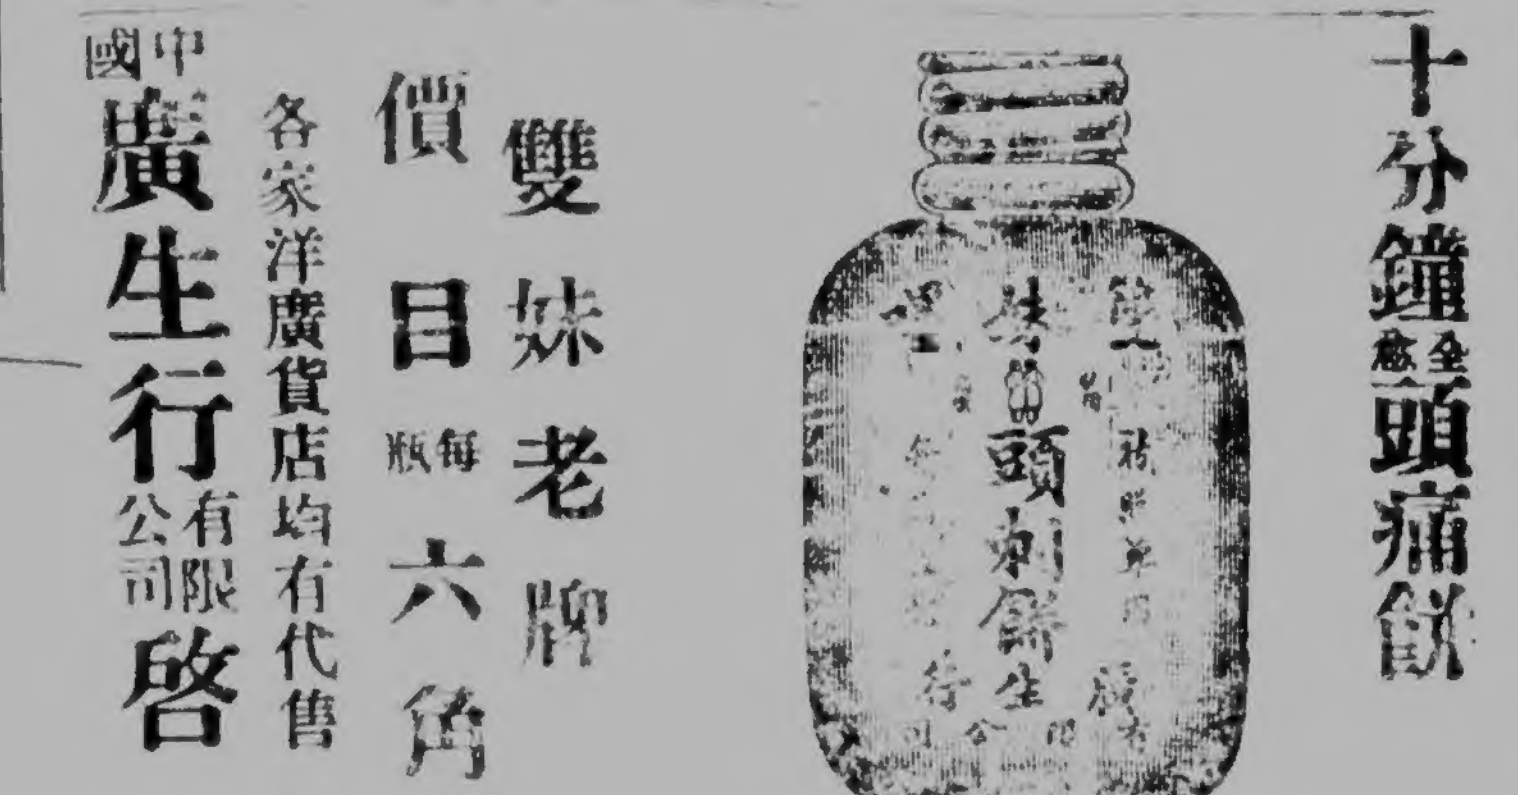 十分鐘全愈頭痛餅
頭刺餅
生
行
雙妹老牌
價目每瓶六角
各家洋廣貨店均有代售
中國廣生行有限公司啓